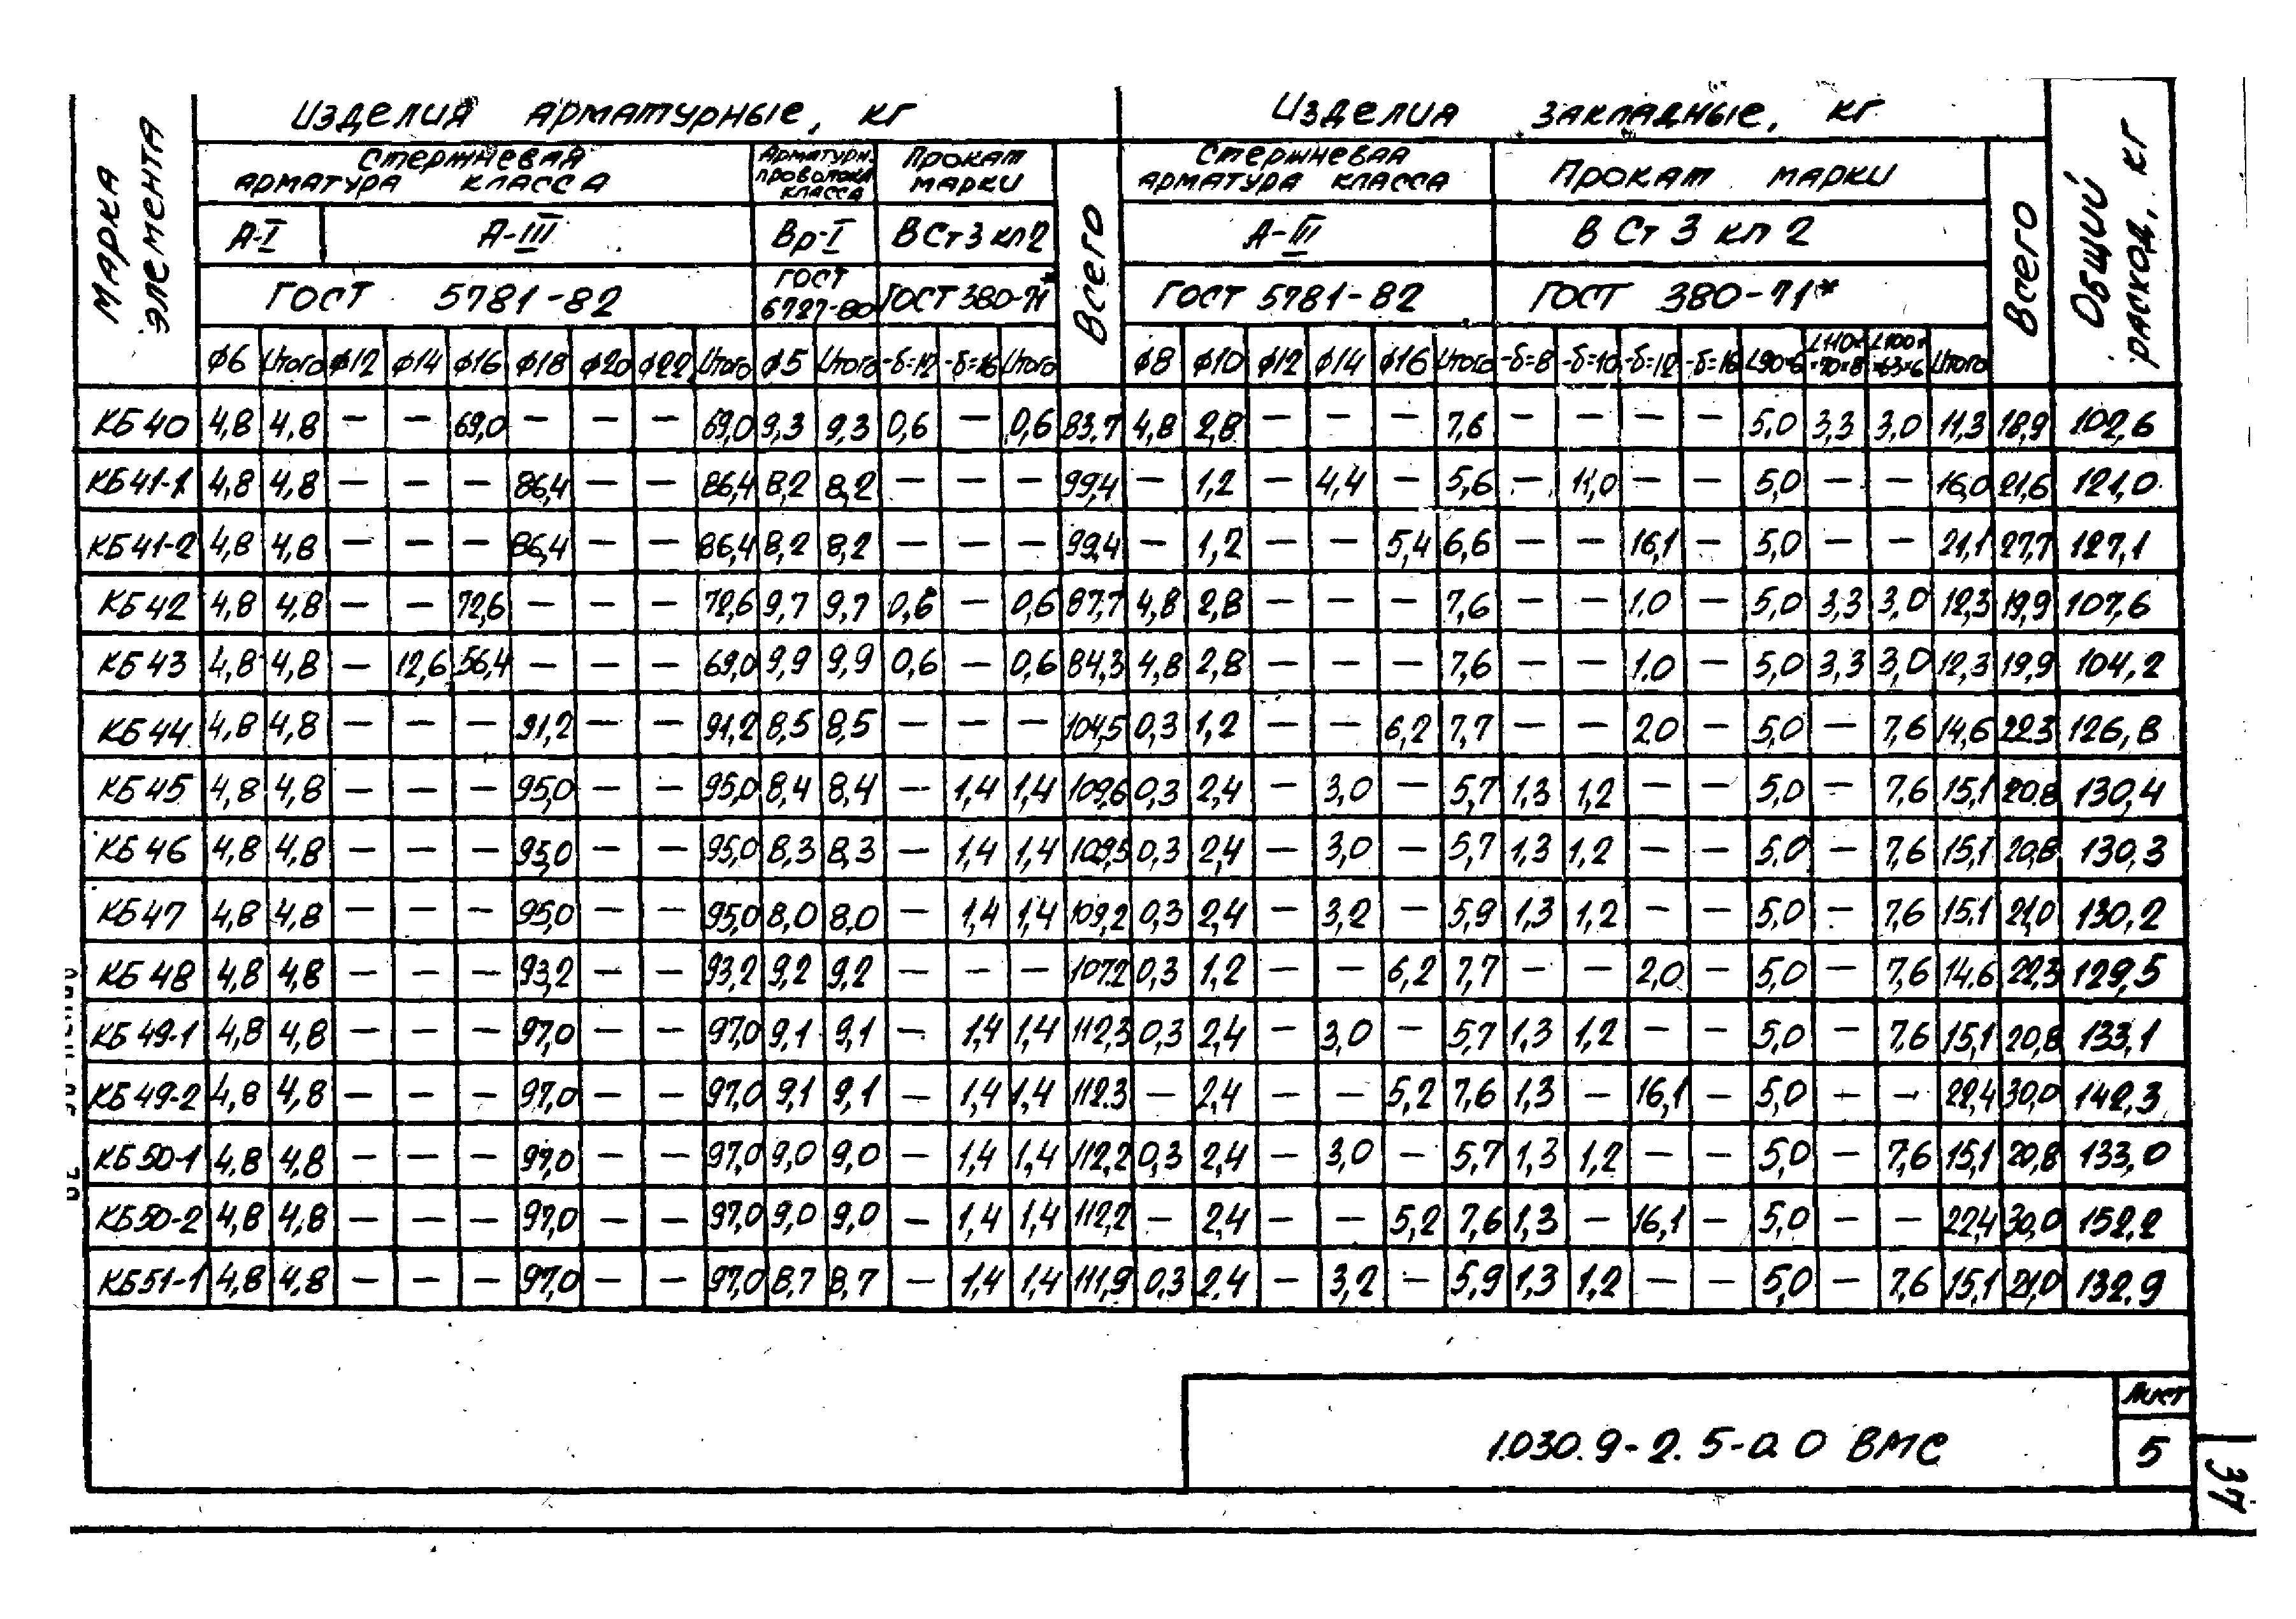 Изделия арматурные, кг
Изделия закладные, кг
Марка элемента
Стержневая арматура класса
Арматурн. проволока класса
Прокат марки
Всего
Стержневая арматура класса
Прокат марки
Всего
Общий расход, кг
А-I А-III Вр-I ВСт3кп2 А-III ВСт3кп2
ГОСТ 5781-82 ГОСТ 6727-80 ГОСТ 380-71* ГОСТ 5781-82 ГОСТ 380-71*
ϕ6 Итого ϕ12 ϕ14 ϕ16 ϕ18 ϕ20 ϕ22 Итого ϕ5 Итого -δ=12 -δ=16 Итого ϕ8 ϕ10 ϕ12 ϕ14 ϕ16 Итого -δ=8 -δ=10 -δ=12 -δ=16 L90×6 L110××70×8 L100××63×6 Итого
КБ 40 4,8 4,8 — — 69,0 — — — 69,0 9,3 9,3 0,6 — 0,6 83,7 4,8 2,8 — — — 7,6 — — — — 5,0 3,3 3,0 11,3 18,9 102,6
КБ 41-1 4,8 4,8 — — — 86,4 — — 86,4 8,2 8,2 — — — 99,4 — 1,2 — 4,4 — 5,6 — 11,0 — — 5,0 — — 16,0 21,6 121,0
КБ 41-2 4,8 4,8 — — — 86,4 — — 86,4 8,2 8,2 — — — 99,4 — 1,2 — — 5,4 6,6 — — 16,1 — 5,0 — — 21,1 27,7 127,1
КБ 42 4,8 4,8 — — 72,6 — — — 72,6 9,7 9,7 0,6 — 0,6 87,7 4,8 2,8 — — — 7,6 — — 1.0 — 5,0 3,3 3,0 12,3 19,9 107,6
КБ 43 4,8 4,8 — 12,6 56,4 — — — 69,0 9,9 9,9 0,6 — 0,6 84,3 4,8 2,8 — — — 7,6 — — 1.0 — 5,0 3,3 3,0 12,3 19,9 104,2
КБ 44 4,8 4,8 — — — 91,2 — — 91,2 8,5 8,5 — — — 104,5 0,3 1,2 — — 6,2 7,7 — — 2,0 — 5,0 — 7,6 14,6 22,3 126,8
КБ 45 4,8 4,8 — — — 95,0 — — 95,0 8,4 8,4 — 1,4 1,4 109,6 0,3 2,4 — 3,0 — 5,7 1,3 1,2 — — 5,0 — 7,6 15,1 20,8 130,4
КБ 46 4,8 4,8 — — — 95,0 — — 95,0 8,3 8,3 — 1,4 1,4 109,5 0,3 2,4 — 3,0 — 5,7 1,3 1,2 — — 5,0 — 7,6 15,1 20,8 130,3
КБ 47 4,8 4,8 — — — 95,0 — — 95,0 8,0 8,0 — 1,4 1,4 109,2 0,3 2,4 — 3,2 — 5,9 1,3 1,2 — — 5,0 — 7,6 15,1 21,0 130,2
КБ 48 4,8 4,8 — — — 93,2 — — 93,2 9,2 9,2 — — — 107.2 0,3 1,2 — — 6,2 7,7 — — 2,0 — 5,0 — 7,6 14.6 22,3 129,5
КБ 49-1 4,8 4,8 — — — 97,0 — — 97,0 9,1 9,1 — 1,4 1,4 112,3 0,3 2,4 — 3,0 — 5,7 1,3 1,2 — — 5,0 — 7,6 15,1 20,8 133,1
КБ 49-2 4,8 4,8 — — — 97,0 — — 97,0 9,1 9,1 — 1,4 1,4 112.3 — 2,4 — — 5,2 7,6 1,3 — 16,1 — 5,0 — — 22,4 30,0 142,3
КБ 50-1 4,8 4,8 — — — 97,0 — — 97,0 9,0 9,0 — 1,4 1,4 112,2 0,3 2,4 — 3,0 — 5,7 1,3 1,2 — — 5,0 — 7,6 15,1 20,8 133,0
КБ 50-2 4,8 4,8 — — — 97,0 — — 97,0 9,0 9,0 — 1,4 1,4 112,2 — 2,4 — — 5,2 7,6 1,3 — 16,1 — 5,0 — — 22,4 30,0 152,2
КБ 51-1 4,8 4,8 — — — 97,0 — — 97,0 8,7 8,7 — 1,4 1,4 111,9 0,3 2,4 — 3,2 — 5,9 1,3 1,2 — — 5,0 — 7,6 15,1 21,0 132.9
1.030.9-2.5-а 0 ВМС
Лист
5
34